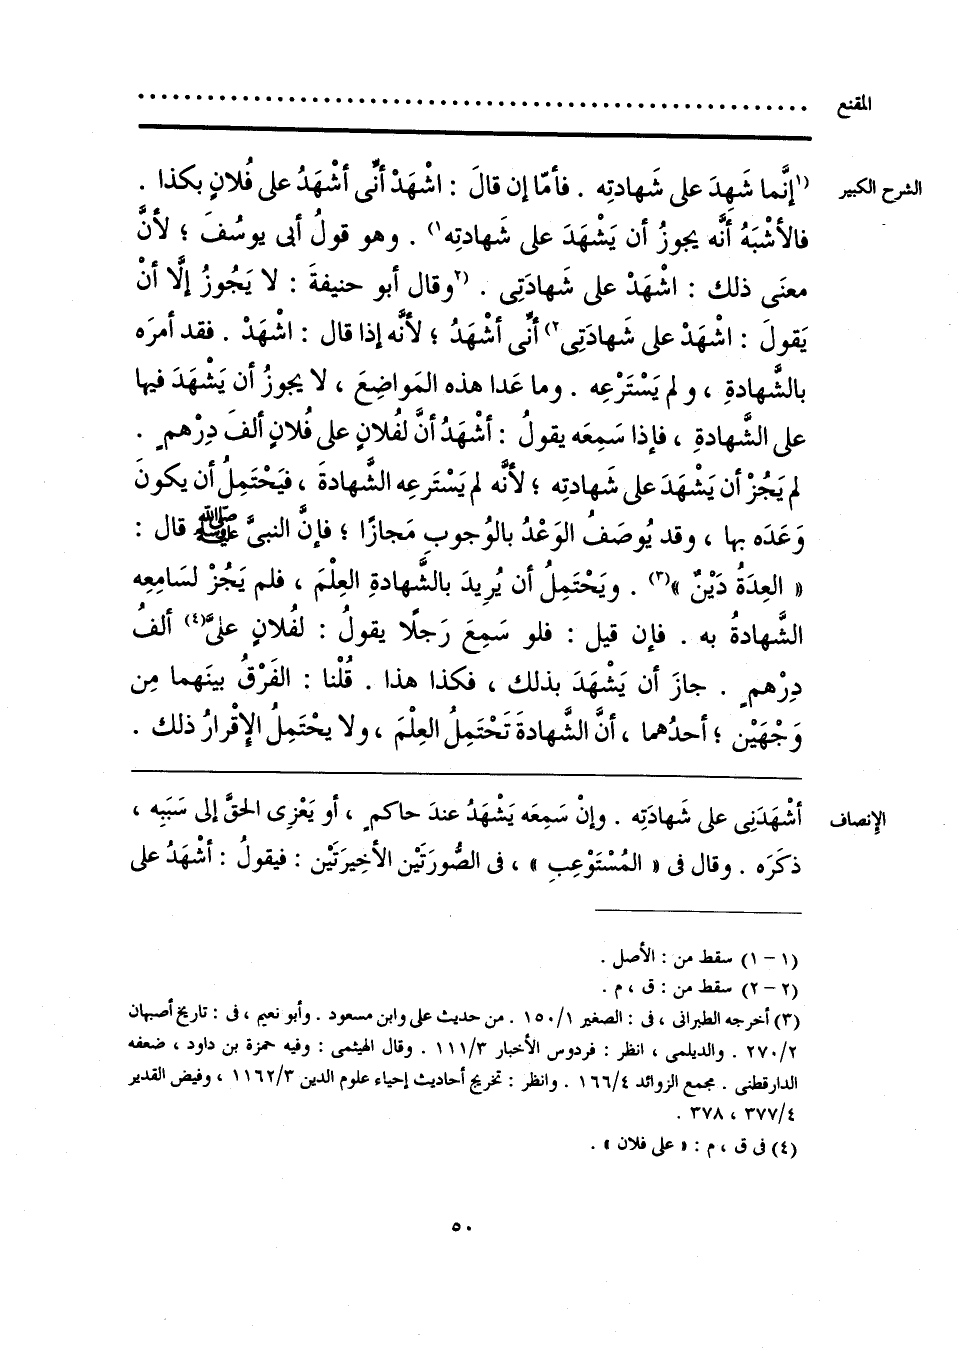 المقنع ........................................................................
الشرح الكبير (١إنَّما شَهِدَ على شَهادتِه . فأمّا إن قالَ : اشْهَدْ أنِّى أشْهَدُ على فُلانٍ بكذا .
فالأشْبَهُ أنَّه يجوزُ أن يَشْهَدَ على شَهادتِه١) . وهو قولُ أبى يوسُفَ ؛ لأنَّ
معنَى ذلك : اشْهَدْ على شَهادَتِى . (٢وقال أبو حنيفةَ : لا يَجُوزُ إلَّا أنْ
يَقولَ : اشْهَدْ على شَهادَتِى٢) أنِّى أشْهَدُ ؛ لأنَّه إذا قال : اشْهَدْ . فقد أمرَه
بالشَّهادةِ ، ولم يَسْتَرْعِه . وما عَدا هذه المَواضِعَ ، لا يجوزُ أن يَشْهَدَ فيها
على الشَّهادةِ ، فإذا سَمِعَه يقولُ : أشْهَدُ أنَّ لفُلانٍ على فُلانٍ ألفَ دِرْهمٍ .
لم يَجُزْ أن يَشْهَدَ على شَهادتِه ؛ لأنَّه لم يَسْتَرعِه الشَّهادةَ ، فيَحْتَمِلُ أن يكونَ
وَعَدَه بها ، وقد يُوصَفُ الوَعْدُ بالوُجوبِ مَجازًا ؛ فإنَّ النبىَّ ﷺ قال :
« العِدَةُ دَيْنٌ »(٣) . ويَحْتَمِلُ أن يُرِيدَ بالشَّهادةِ العِلْمَ ، فلم يَجُزْ لسَامِعِه
الشَّهادةُ به . فإن قيل : فلو سَمِعَ رَجلًا يقولُ : لفُلانٍ علىَّ(٤) ألفُ
دِرْهمٍ . جازَ أن يَشْهَدَ بذلك ، فكذا هذا . قُلْنا : الفَرْقُ بينَهما مِن
وَجْهَيْن ؛ أحدُهما ، أنَّ الشَّهادةَ تَحْتَمِلُ العِلْمَ ، ولا يحْتَمِلُ الإقْرارُ ذلك .
الإنصاف أشْهَدَنِى على شَهادَتِه . وإنْ سَمِعَه يَشْهَدُ عندَ حاكمٍ ، أو يَعْزِى الحقَّ إلى سَبَبِه ،
ذكَرَه . وقال فى « المُسْتَوْعِبِ » ، فى الصُّورَتَيْن الأخِيرَتَيْن : فيقولُ : أشْهَدُ على
(١ - ١) سقط من : الأصل .
(٢ - ٢) سقط من : ق ، م .
(٣) أخرجه الطبرانى ، فى : الصغير ١/ ١٥٠ . من حديث على وابن مسعود . وأبو نعيم ، فى : تاريخ أصبهان
٢/ ٢٧٠ . والديلمى ، انظر : فردوس الأخبار ٣/ ١١١ . وقال الهيثمى : وفيه حمزة بن داود ، ضعفه
الدارقطنى . مجمع الزوائد ٤/ ١٦٦ . وانظر : تخريج أحاديث إحياء علوم الدين ٣/ ١١٦٢ ، وفيض القدير
٤/ ٣٧٧ ، ٣٧٨ .
(٤) فى ق ، م : « على فلان » .
٥٠